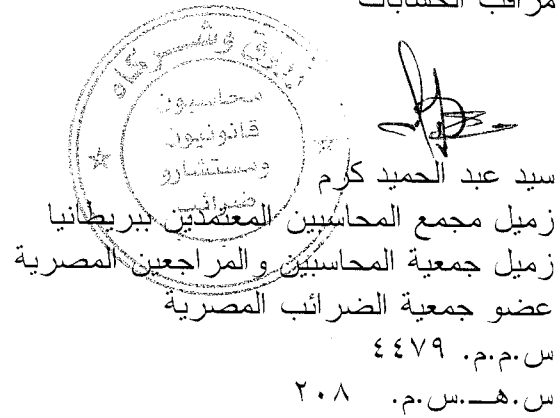 مراقب الحسابات
وشركاه
محاسبون
قانونيون
ومستشارو
ضرائب
سيد عبد الحميد كرم
زميل مجمع المحاسبين المعتمدين ببريطانيا
زميل جمعية المحاسبين والمراجعين المصرية
عضو جمعية الضرائب المصرية
س.م.م. ٤٤٧٩
س.هـ.س.م. ٢٠٨